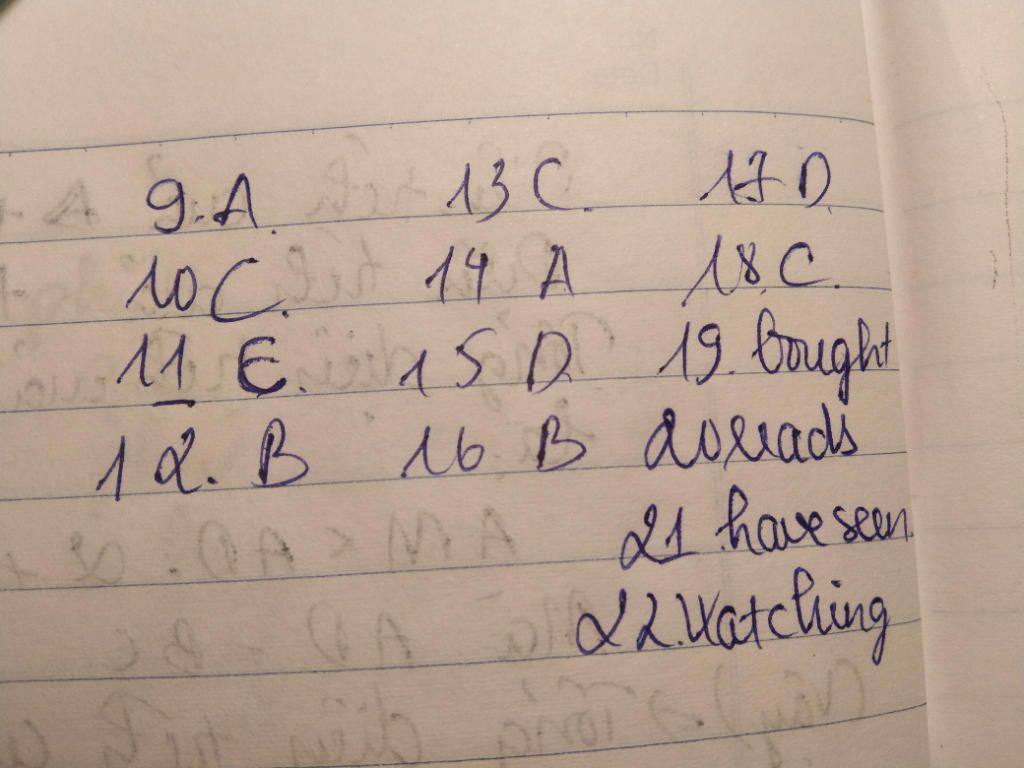 9. A. 13 C. 17 D.
10 C. 14 A 18. C.
11 C. 15 D. 19. bought
12. B 16 B 20 reads
21 have seen.
22. Watching